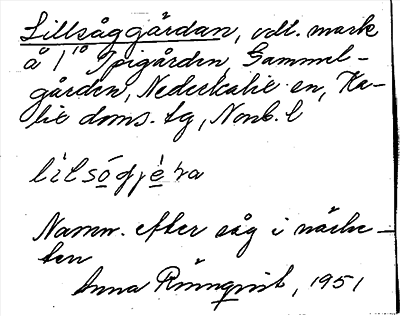 Lillsåggårdan, odl. mark
å 1/10 Ipigården, Gammel-
gården, Nederkalix en, Ka-
lix doms. tg, Nonb. l
lilsógjè ra
Namn. efter såg i närhe-
ten
Anna Rönnqvist, 1951